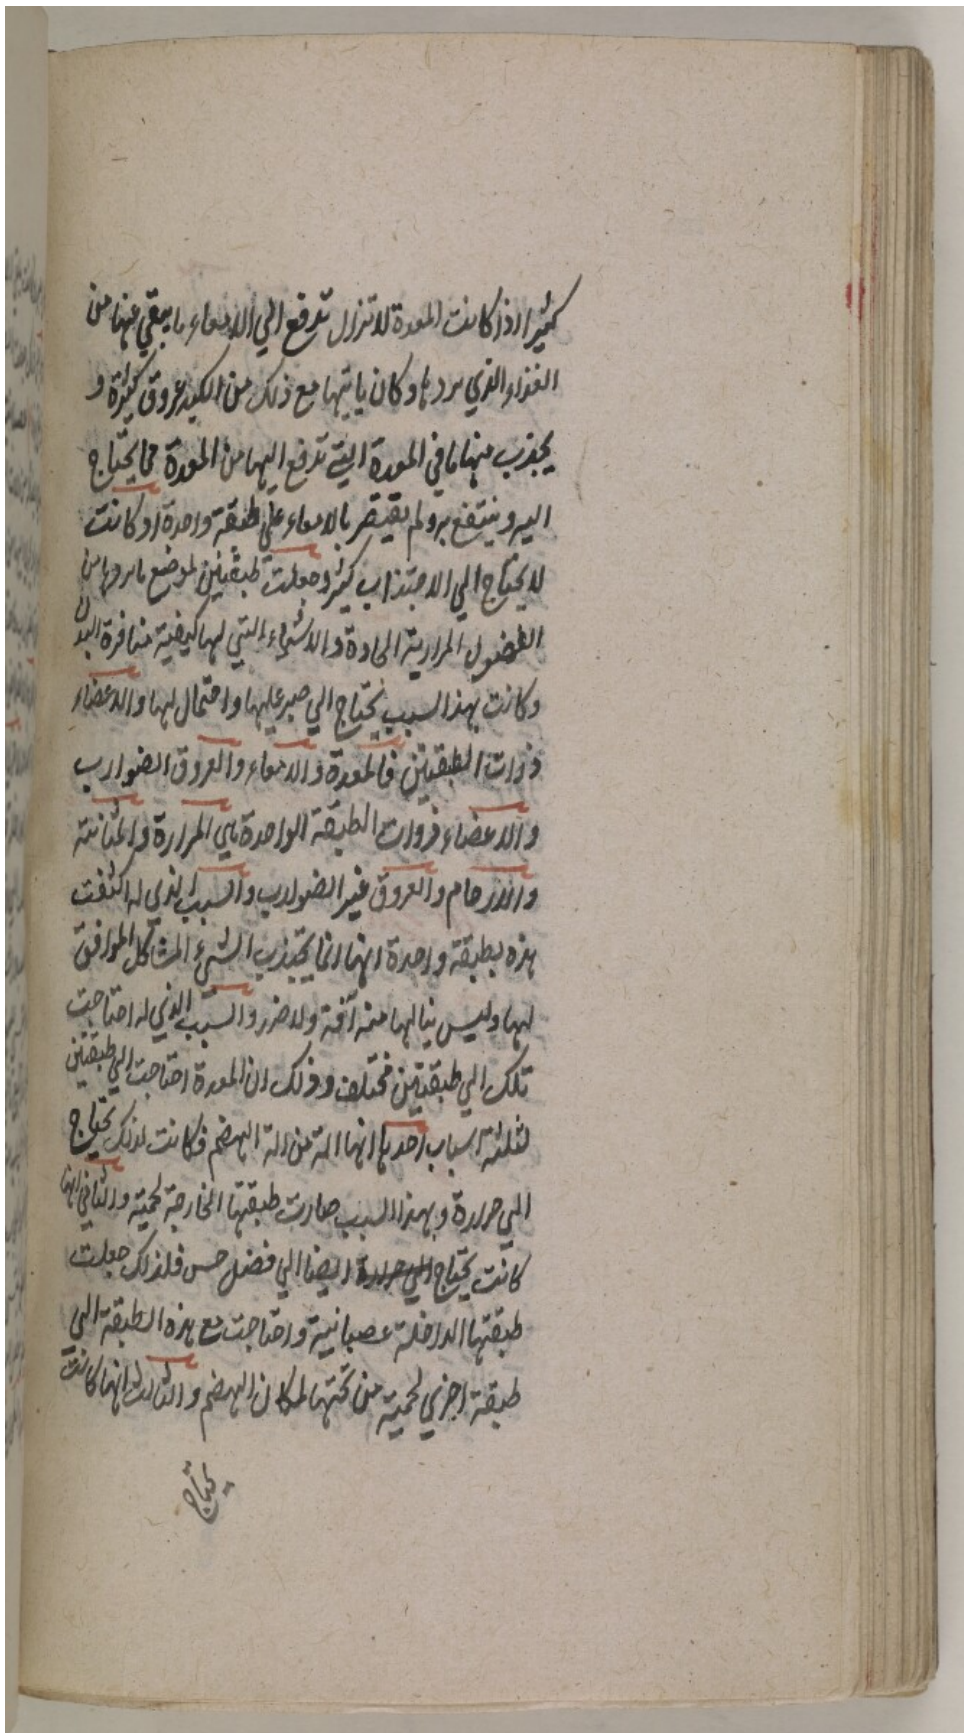 كثيرا اذا كانت المعدة لا تزال تدفع الي الامعاء ما يبقي عنها من
الغذاء الذي يردها وكان ياتيها مع ذلك من الكبد عروق كثيرة و
يجذب منها ما في المعدة التي تدفع اليها من المعدة مما يحتاج
اليه وينتفع به ولم يقتصر بالامعاء علي طبقة واحدة اذ كانت
لا يحتاج الي الاجتذاب كثير وجعلت طبقتين لموضع ما يردها من
الفضول المرارية الحادة والاشياء التي لها كيفية منافرة البدن
وكانت بهذا السبب يحتاج الي صبر عليها واحتمال لها والاعضاء
ذوات الطبقتين فالمعدة والامعاء والعروق الضوارب
والاعضاء ذوات الطبقة الواحدة هي المرارة والمثانة
والارحام والعروق غير الضوارب والسبب الذي له اكتفت
هذه بطبقة واحدة انها انما يجتذب الشيء المشاكل الموافق
لها وليس ينالها منه آفة ولا ضرر والسبب الذي له احتاجت
تلك الي طبقتين مختلف وذلك ان المعدة احتاجت الي طبقتين
لثلثة اسباب احدها انها الة من الة الهضم فكانت لذلك يحتاج
الي حرارة وبهذا السبب صارت طبقتها الخارجة لحمية والثاني انها
كانت يحتاج الي حرارة ايضا الي فضل حس فلذلك جعلت
طبقتها الداخلة عصبانية واحتاجت مع هذه الطبقة الي
طبقة اخري لحمية من تحتها لمكان الهضم والثالث انها كانت
يحتاج